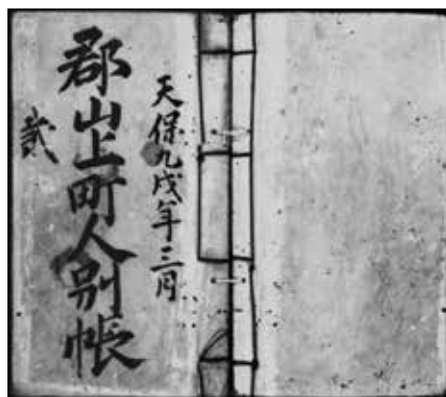 天保九戌年三月
郡山上町人別帳
弐